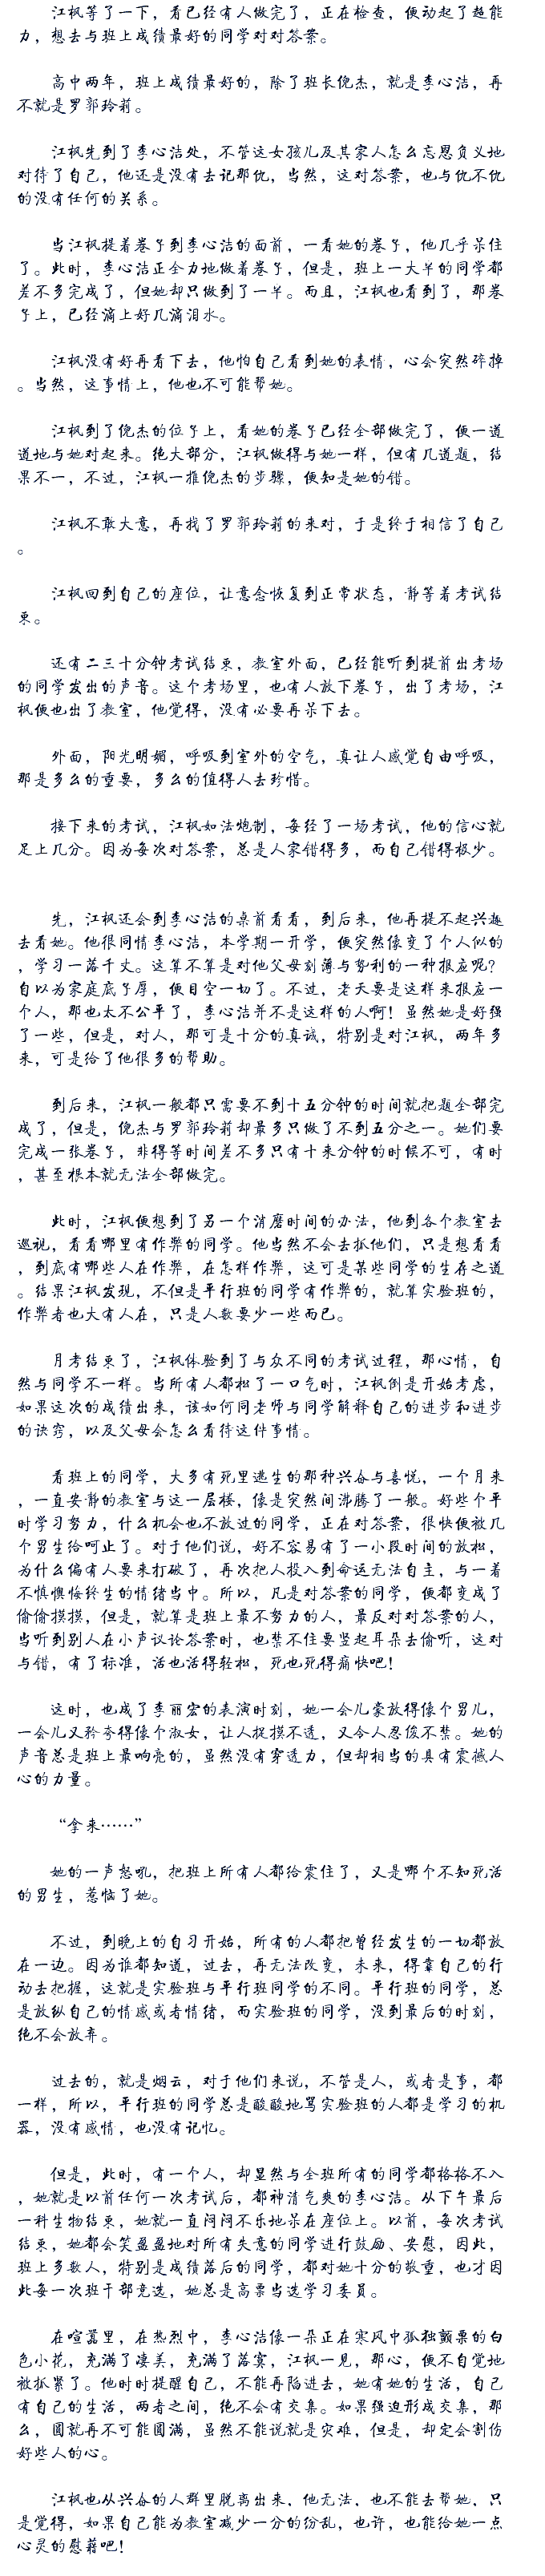 江枫等了一下，看已经有人做完了，正在检查，便动起了超能
力，想去与班上成绩最好的同学对对答案。
高中两年，班上成绩最好的，除了班长倪杰，就是李心洁，再
不就是罗郭玲莉。
江枫先到了李心洁处，不管这女孩儿及其家人怎么忘恩负义地
对待了自己，他还是没有去记那仇，当然，这对答案，也与仇不仇
的没有任何的关系。
当江枫提着卷子到李心洁的面前，一看她的卷子，他几乎呆住
了。此时，李心洁正全力地做着卷子，但是，班上一大半的同学都
差不多完成了，但她却只做到了一半。而且，江枫也看到了，那卷
子上，已经滴上好几滴泪水。
江枫没有好再看下去，他怕自己看到她的表情，心会突然碎掉
。当然，这事情上，他也不可能帮她。
江枫到了倪杰的位子上，看她的卷子已经全部做完了，便一道
道地与她对起来。绝大部分，江枫做得与她一样，但有几道题，结
果不一，不过，江枫一推倪杰的步骤，便知是她的错。
江枫不敢大意，再找了罗郭玲莉的来对，于是终于相信了自己
。
江枫回到自己的座位，让意念恢复到正常状态，静等着考试结
束。
还有二三十分钟考试结束，教室外面，已经能听到提前出考场
的同学发出的声音。这个考场里，也有人放下卷子，出了考场，江
枫便也出了教室，他觉得，没有必要再呆下去。
外面，阳光明媚，呼吸到室外的空气，真让人感觉自由呼吸，
那是多么的重要，多么的值得人去珍惜。
接下来的考试，江枫如法炮制，每经了一场考试，他的信心就
足上几分。因为每次对答案，总是人家错得多，而自己错得极少。
先，江枫还会到李心洁的桌前看看，到后来，他再提不起兴趣
去看她。他很同情李心洁，本学期一开学，便突然像变了个人似的
，学习一落千丈。这算不算是对他父母刻薄与势利的一种报应呢？
自以为家庭底子厚，便目空一切了。不过，老天要是这样来报应一
个人，那也太不公平了，李心洁并不是这样的人啊！虽然她是好强
了一些，但是，对人，那可是十分的真诚，特别是对江枫，两年多
来，可是给了他很多的帮助。
到后来，江枫一般都只需要不到十五分钟的时间就把题全部完
成了，但是，倪杰与罗郭玲莉却最多只做了不到五分之一。她们要
完成一张卷子，非得等时间差不多只有十来分钟的时候不可，有时
，甚至根本就无法全部做完。
此时，江枫便想到了另一个消磨时间的办法，他到各个教室去
巡视，看看哪里有作弊的同学。他当然不会去抓他们，只是想看看
，到底有哪些人在作弊，在怎样作弊，这可是某些同学的生存之道
。结果江枫发现，不但是平行班的同学有作弊的，就算实验班的，
作弊者也大有人在，只是人数要少一些而已。
月考结束了，江枫体验到了与众不同的考试过程，那心情，自
然与同学不一样。当所有人都松了一口气时，江枫倒是开始考虑，
如果这次的成绩出来，该如何同老师与同学解释自己的进步和进步
的诀窍，以及父母会怎么看待这件事情。
看班上的同学，大多有死里逃生的那种兴奋与喜悦，一个月来
，一直安静的教室与这一层楼，像是突然间沸腾了一般。好些个平
时学习努力，什么机会也不放过的同学，正在对答案，很快便被几
个男生给呵止了。对于他们说，好不容易有了一小段时间的放松，
为什么偏有人要来打破了，再次把人投入到命运无法自主，与一着
不慎懊悔终生的情绪当中。所以，凡是对答案的同学，便都变成了
偷偷摸摸，但是，就算是班上最不努力的人，最反对对答案的人，
当听到别人在小声议论答案时，也禁不住要竖起耳朵去偷听，这对
与错，有了标准，活也活得轻松，死也死得痛快吧！
这时，也成了李丽宏的表演时刻，她一会儿豪放得像个男儿，
一会儿又矜夸得像个淑女，让人捉摸不透，又令人忍俊不禁。她的
声音总是班上最响亮的，虽然没有穿透力，但却相当的具有震撼人
心的力量。
“拿来……”
她的一声怒吼，把班上所有人都给震住了，又是哪个不知死活
的男生，惹恼了她。
不过，到晚上的自习开始，所有的人都把曾经发生的一切都放
在一边。因为谁都知道，过去，再无法改变，未来，得靠自己的行
动去把握，这就是实验班与平行班同学的不同。平行班的同学，总
是放纵自己的情感或者情绪，而实验班的同学，没到最后的时刻，
绝不会放弃。
过去的，就是烟云，对于他们来说，不管是人，或者是事，都
一样，所以，平行班的同学总是酸酸地骂实验班的人都是学习的机
器，没有感情，也没有记忆。
但是，此时，有一个人，却显然与全班所有的同学都格格不入
，她就是以前任何一次考试后，都神清气爽的李心洁。从下午最后
一科生物结束，她就一直闷闷不乐地呆在座位上。以前，每次考试
结束，她都会笑盈盈地对所有失意的同学进行鼓励、安慰，因此，
班上多数人，特别是成绩落后的同学，都对她十分的敬重，也才因
此每一次班干部竞选，她总是高票当选学习委员。
在喧嚣里，在热烈中，李心洁像一朵正在寒风中孤独颤栗的白
色小花，充满了凄美，充满了落寞，江枫一见，那心，便不自觉地
被抓紧了。他时时提醒自己，不能再陷进去，她有她的生活，自己
有自己的生活，两者之间，绝不会有交集。如果强迫形成交集，那
么，圆就再不可能圆满，虽然不能说就是灾难，但是，却定会割伤
好些人的心。
江枫也从兴奋的人群里脱离出来，他无法，也不能去帮她，只
是觉得，如果自己能为教室减少一分的纷乱，也许，也能给她一点
心灵的慰藉吧！